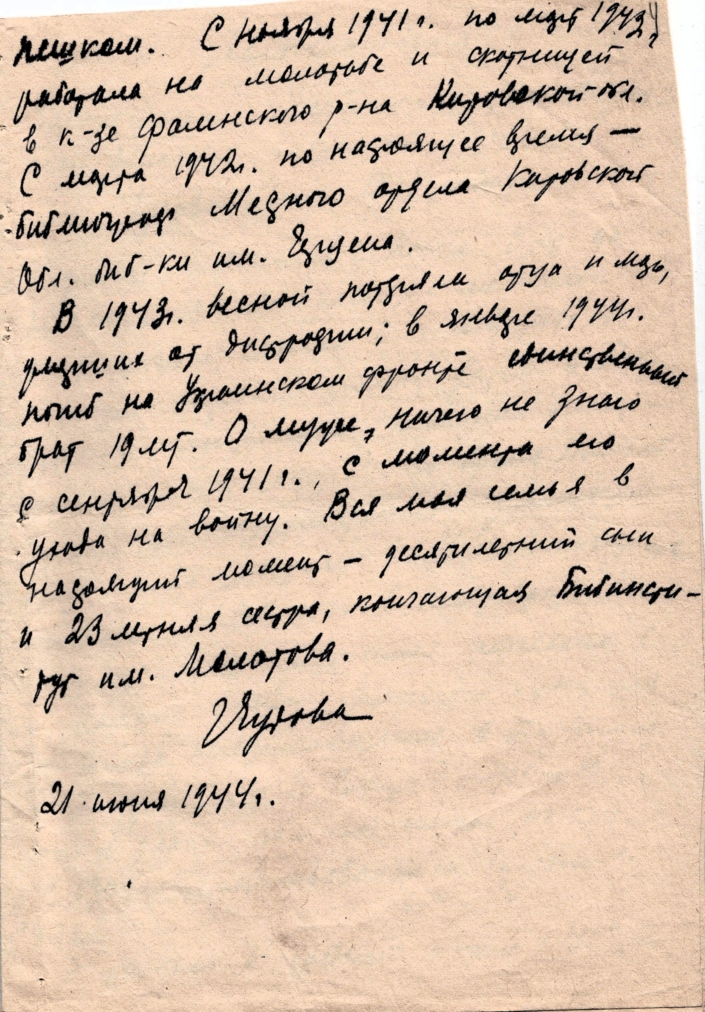 пешком. С ноября 1941 г. по март 1942 г.
работала на молотьбе и скотницей
в к-зе Фаленского р-на Кировской обл.
С марта 1942 г. по настоящее время —
библиограф Медного отдела Кировской
Обл. биб-ки им. Герцена.
В 1943 г. весной потеряла отца и мать,
умерших от дистрофии; в январе 1944 г.
погиб на Украинском фронте единственный
брат 19 лет. О муже, ничего не знаю
с сентября 1941 г., с момента его
ухода на войну. Вся моя семья в
настоящий момент – десятилетний сын
и 23 летняя сестра, кончающая Бибинсти-
тут им. Молотова.
21 июня 1944 г.